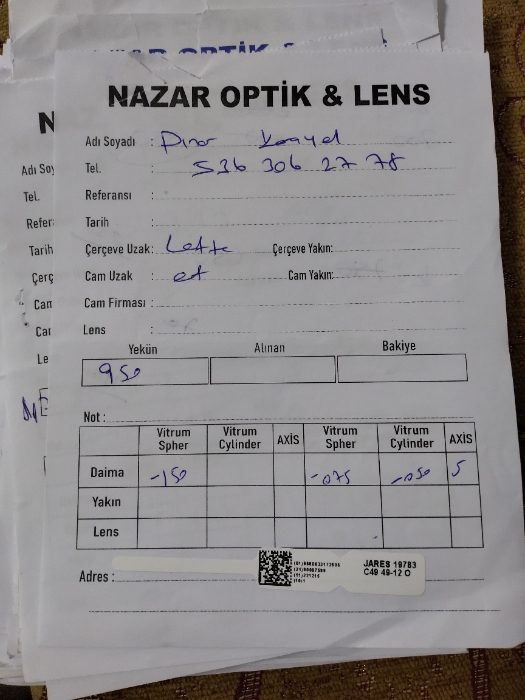 NAZAR OPTİK & LENS
Adı Soyadı : Pınar
Tel. : 536 306 27 78
Referansı :
Tarih :
Çerçeve Uzak: Çerçeve Yakın:
Cam Uzak : Cam Yakın:
Cam Firması :
Lens :
Yekün Alınan Bakiye
950
Not :
Vitrum Spher Vitrum Cylinder AXİS Vitrum Spher Vitrum Cylinder AXİS
Daima -150 -075 -050 5
Yakın
Lens
Adres :
JARES 19783
C49 49-12 O
Tel.
Tarih
Le